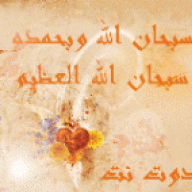 سبحان الله وبحمده
سبحان الله العظيم
دوت نت